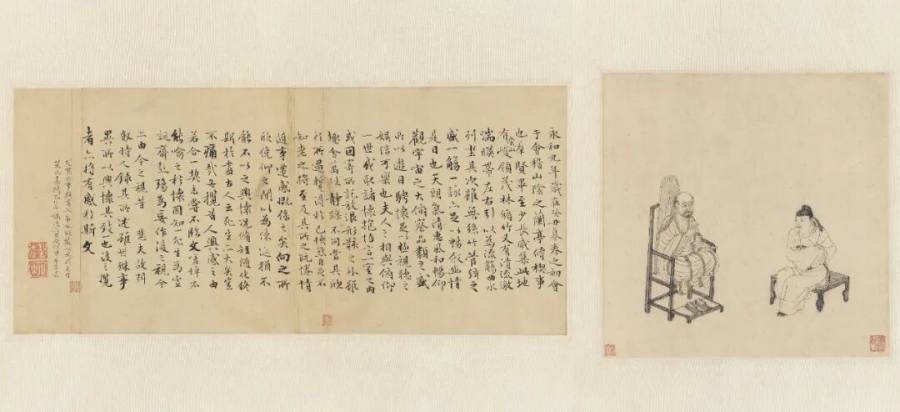 永和九年歲在癸丑暮春之初會
于會稽山陰之蘭亭脩稧事
也群賢畢至少長咸集此地
有峻領茂林脩竹又有清流激
湍暎帶左右引以為流觴曲水
列坐其次雖無絲竹管弦之
盛一觴一詠亦足以暢敘幽情
是日也天朗氣清惠風和暢仰
觀宇宙之大俯察品類之盛
所以遊目騁懷足以極視聽之
娛信可樂也夫人之相與俯仰
一世或取諸懷抱悟言一室之內
或因寄所託放浪形骸之外雖
趣舍萬殊靜躁不同當其欣
於所遇暫得於己怏然自足不
知老之將至及其所之既惓情
隨事遷感慨係之矣向之所
欣俛仰之間以為陳迹猶不
能不以之興懷況脩短隨化終
期於盡古人云死生亦大矣豈
不痛哉每攬昔人興感之由
若合一契未嘗不臨文嗟悼不
能喻之於懷固知一死生為虛
誕齊彭殤為妄作後之視今
亦由今之視昔 悲夫故列
敘時人錄其所述雖世殊事
異所以興懷其致一也後之攬
者亦將有感於斯文